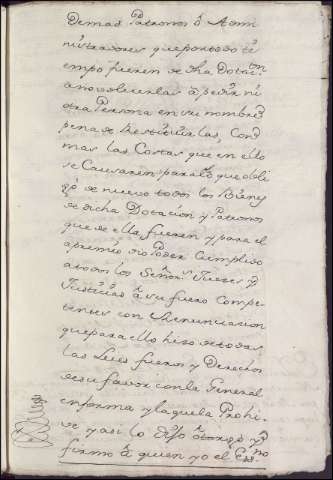 demas Patronos ô Admi
nistradores que por todo ti
empo fueren de dha Dotacion
a no volverlas â pedir ni
otra Persona en su nombre
pena de Restituirlas, con
mas las Costas que en ello
se Causaren para lo que obli
gó de nuevo todos los Bienes
de dicha Dotacion y Patronos
que de ella fueren y para el
apremio dio Poder Cumplido
a todos los Señores Jueces y
Justicias â su fuero Compe
tentes con Renunciacion
que para ello hizo de todas
las Leies fueros y Derechos
de su favor con la General
en forma y la que la Prohi
ve y asi lo dijo otorgó y
firmo â quien yo el Essno